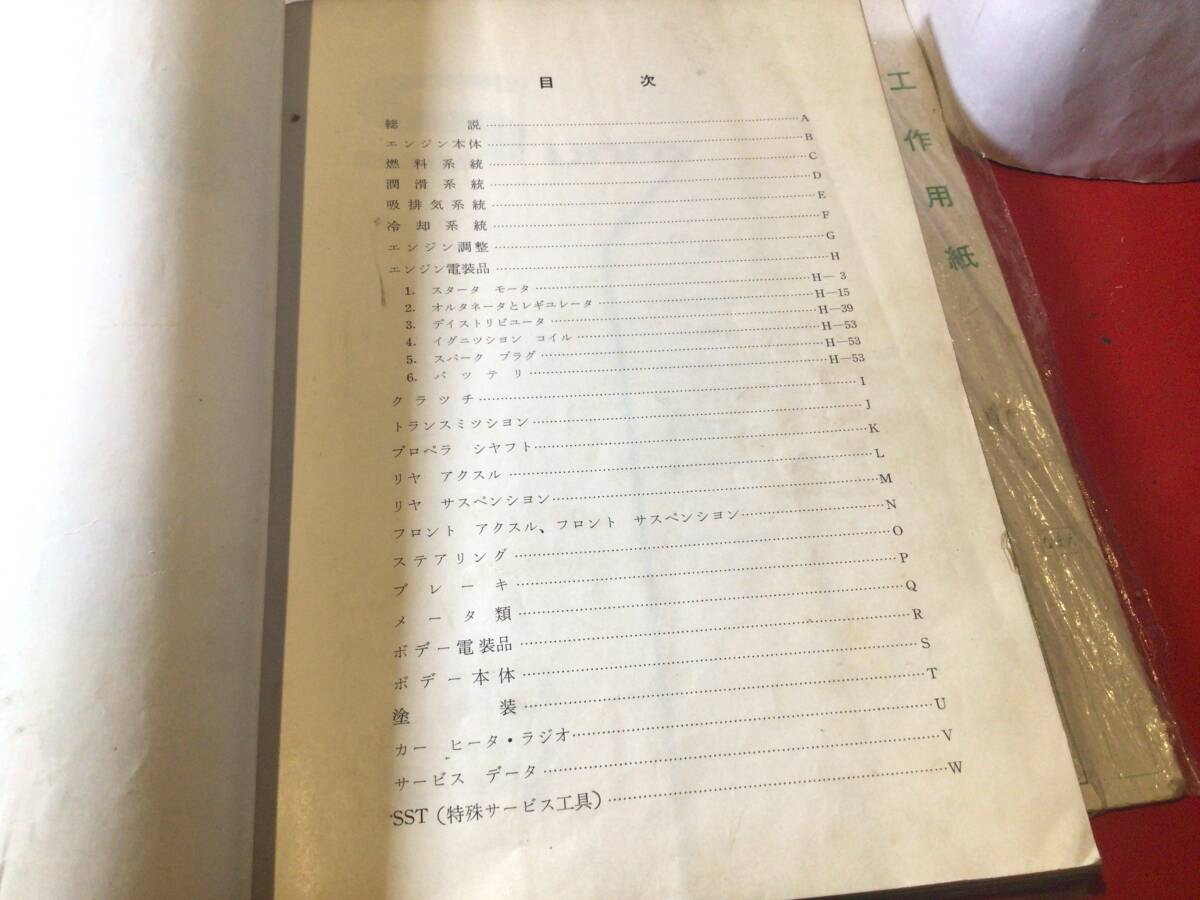 目 次
総 説 A
エンジン本体 B
燃料系統 C
潤滑系統 D
吸排気系統 E
冷却系統 F
エンジン調整 G
エンジン電装品 H
1. スタータ モータ H-3
2. オルタネータとレギユレータ H-15
3. デイストリビユータ H-39
4. イグニツシヨン コイル H-53
5. スパーク プラグ H-53
6. バツテリ H-53
クラツチ I
トランスミツシヨン J
プロペラ シヤフト K
リヤ アクスル L
リヤ サスペンシヨン M
フロント アクスル、フロント サスペンシヨン N
ステアリング O
ブレーキ P
メータ類 Q
ボデー電装品 R
ボデー本体 S
塗 装 T
カー ヒータ・ラジオ U
サービス データ V
SST (特殊サービス工具) W
工作用紙